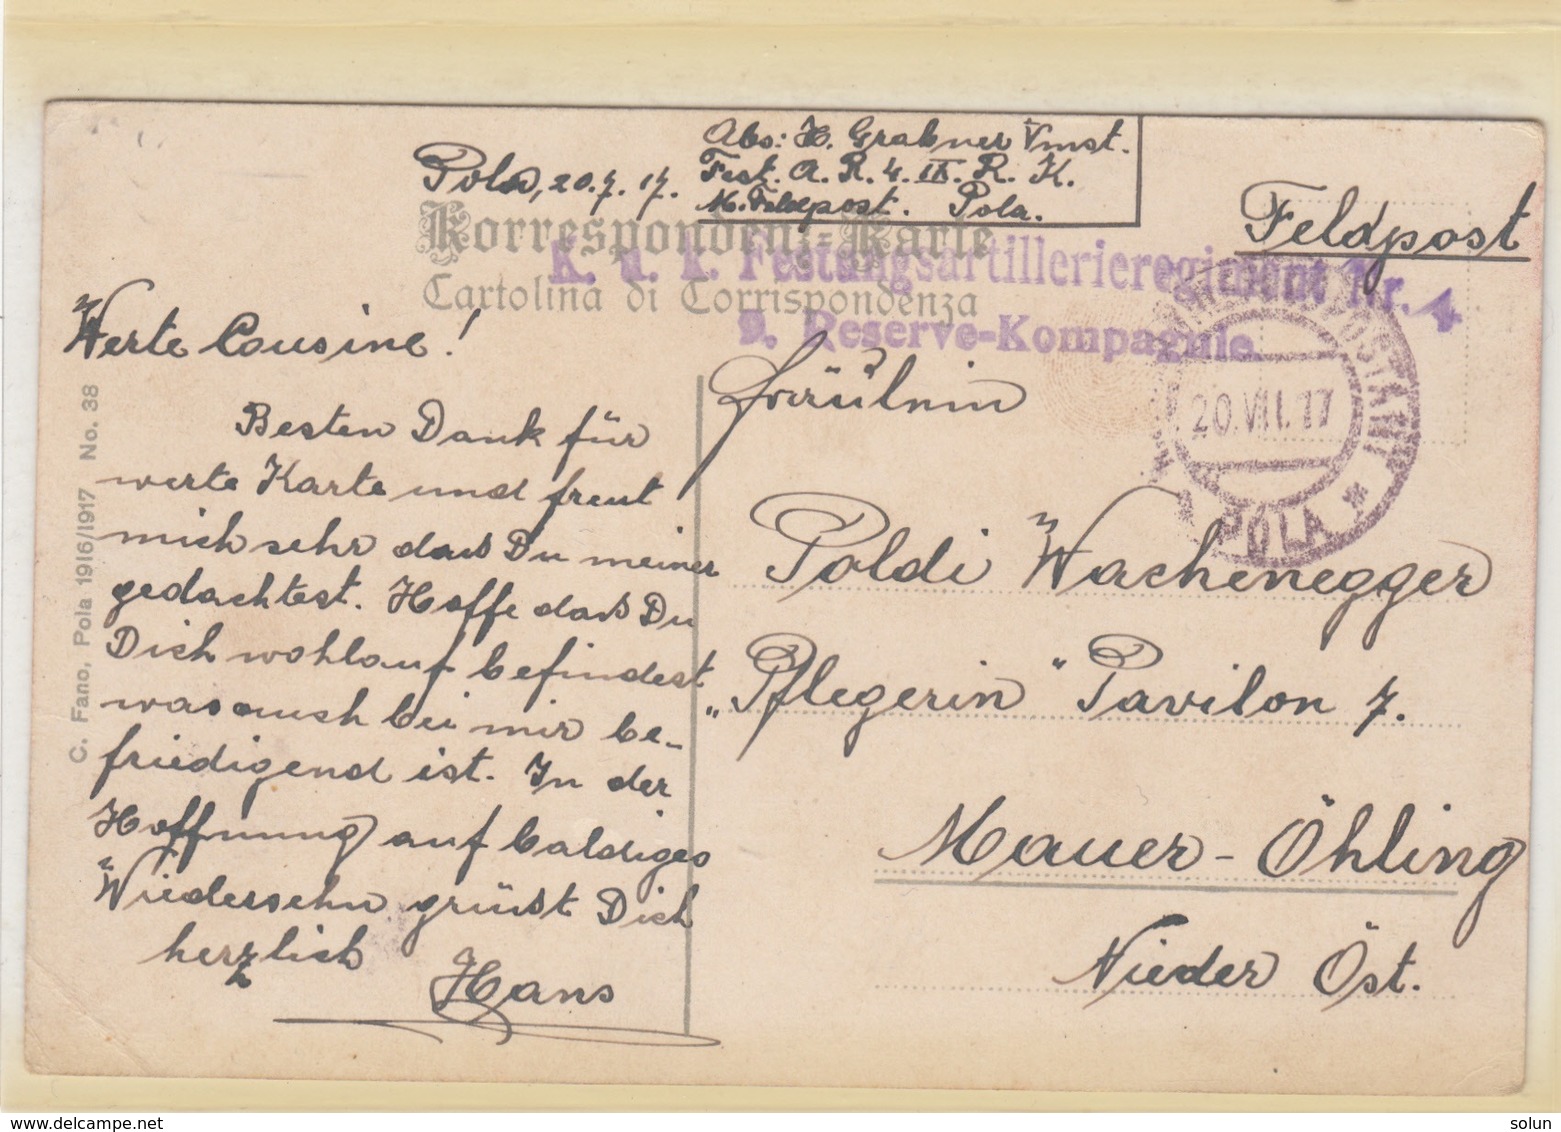 Abs: H. Grabner Vmst.
Fest. A. R. 4. IX. R. K.
M. Feldpost. Pola.
Pola, 20.7.17.
Feldpost
Korrespondenz-Karte
Cartolina di Corrispondenza
K. u. k. Festungsartillerieregiment Nr. 4
9. Reserve-Kompagnie
20.VII.17
POLA
Werte Cousine!
Besten Dank für
werte Karte und freut
mich sehr dass Du meiner
gedachtest. Hoffe dass Du
Dich wohlauf befindest
was auch bei mir be-
friedigend ist. In der
Hoffnung auf baldiges
Wiedersehn grüsst Dich
herzlich
Hans
Fräulein
Poldi Wachenegger
"Pflegerin" Pavilon 7.
Mauer-Öhling
Nieder Öst.
C. Fano, Pola 1916/1917 No. 38
delcampe.net
solun